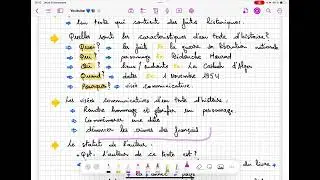 un texte qui contient des faits historiques.
Quelles sont les caractéristiques d'un texte d'histoire?
Quoi? les faits la guerre de libération nationale
Qui? personnage Didouche Mourad
Où? lieux / endroits La Casbah d'Alger
Quand? dates 1 novembre 1954
Pourquoi? visée communicative.
Les visées communicatives d'un texte d'histoire:
Rendre hommage et glorifier un personnage.
Commémorer une date
dénoncer les crimes des français
Le statut de l'auteur:
Qst: L'auteur de ce texte est?
du livre